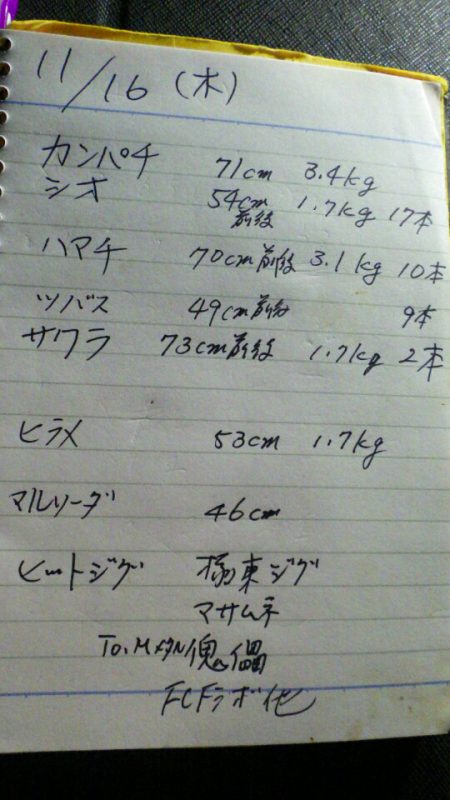 11/16 (木)
カンパチ 71cm 3.4kg
シオ 54cm前後 1.7kg 17本
ハマチ 70cm前後 3.1kg 10本
ツバス 49cm前後 9本
サワラ 73cm前後 1.7kg 2本
ヒラメ 53cm 1.7kg
マルソーダ 46cm
ヒットジグ 極東ジグ
マサムネ
To.Mメタル 傀儡
FCFラボ他